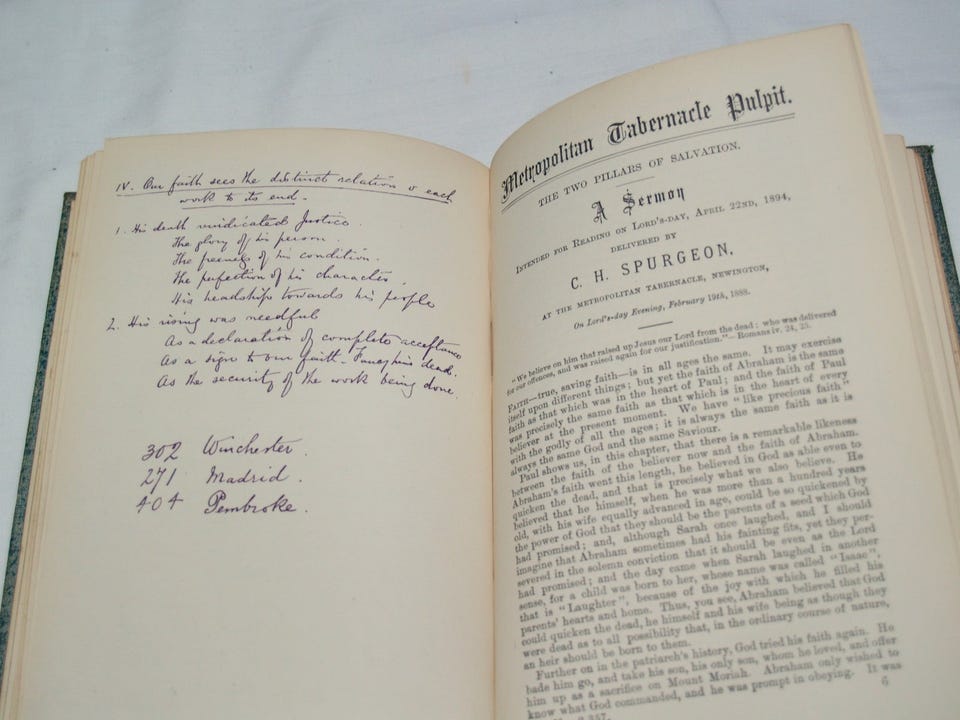 IV. Our faith sees the distinct relation o each
work to its end.
1. His death vindicated Justice.
The glory of his person.
The freeness of his condition.
The perfection of his character.
His headship towards his people
2. His rising was needful
As a declaration of complete acceptance
As a sign to our faith dead.
As the security of the work being done.
302 Winchester.
271 Madrid.
404 Pembroke.
Metropolitan Tabernacle Pulpit.
THE TWO PILLARS OF SALVATION.
A Sermon
INTENDED FOR READING ON LORD'S-DAY, APRIL 22ND, 1894,
DELIVERED BY
C. H. SPURGEON,
AT THE METROPOLITAN TABERNACLE, NEWINGTON,
On Lord's-day Evening, February 19th, 1888.
"We believe on him that raised up Jesus our Lord from the dead; who was delivered
for our offences, and was raised again for our justification."—Romans iv. 24, 25.
FAITH—true, saving faith—is in all ages the same. It may exercise
itself upon different things; but yet the faith of Abraham is the same
faith as that which was in the heart of Paul; and the faith of Paul
was precisely the same faith as that which is in the heart of every
believer at the present moment. We have "like precious faith"
with the godly of all the ages; it is always the same faith as it is
always the same God and the same Saviour.
Paul shows us, in this chapter, that there is a remarkable likeness
between the faith of the believer now and the faith of Abraham.
Abraham's faith went this length, he believed in God as able even to
quicken the dead, and that is precisely what we also believe. He
believed that he himself, when he was more than a hundred years
old, with his wife equally advanced in age, could be so quickened by
the power of God that they should be the parents of a seed which God
had promised; and, although Sarah once laughed, and I should
imagine that Abraham sometimes had his fainting fits, yet they per-
severed in the solemn conviction that it should be even as the Lord
had promised; and the day came when Sarah laughed in another
sense, for a child was born to her, whose name was called "Isaac",
that is "Laughter", because of the joy with which he filled his
parents' hearts and home. Thus, you see, Abraham believed that God
could quicken the dead, he himself and his wife being as though they
were dead as to all possibility that, in the ordinary course of nature,
an heir should be born to them.
Further on in the patriarch's history, God tried his faith again. He
bade him go, and take his son, his only son, whom he loved, and offer
him up as a sacrifice on Mount Moriah. Abraham only wished to
know what God commanded, and he was prompt in obeying. It was
2,357.